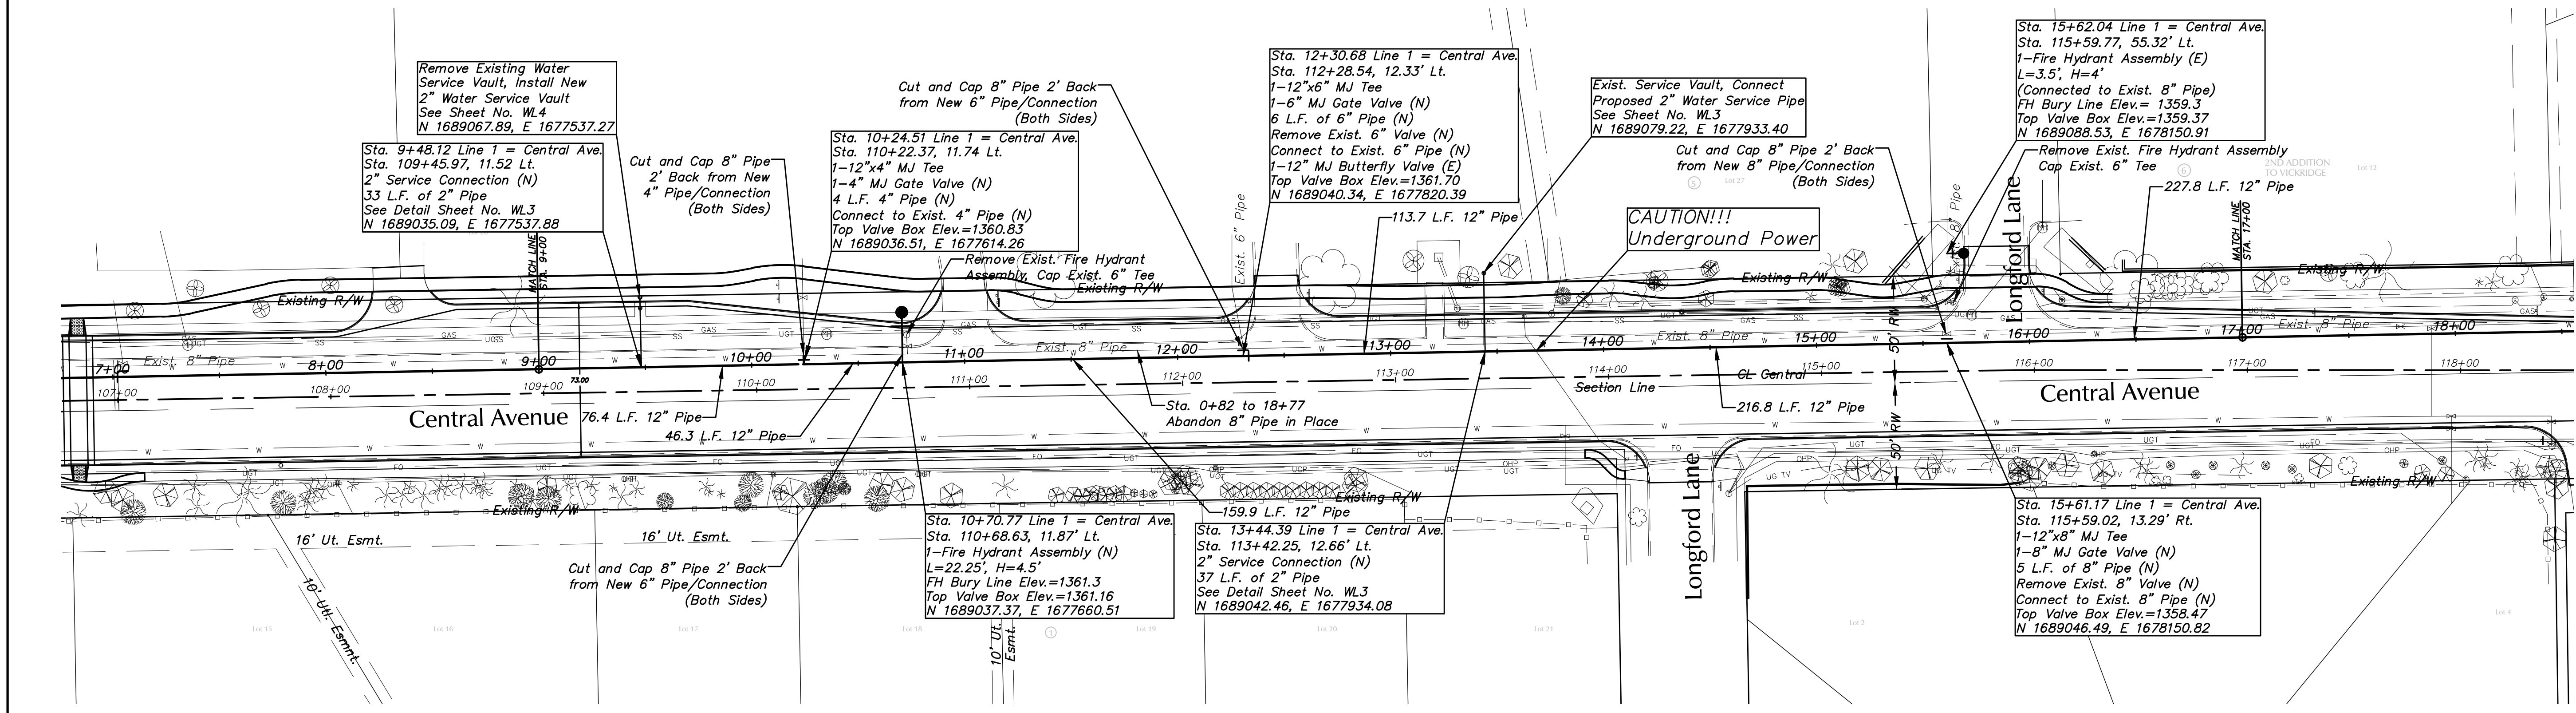 Remove Existing Water
Service Vault, Install New
2" Water Service Vault
See Sheet No. WL4
N 1689067.89, E 1677537.27
Sta. 9+48.12 Line 1 = Central Ave.
Sta. 109+45.97, 11.52 Lt.
2" Service Connection (N)
33 L.F. of 2" Pipe
See Detail Sheet No. WL3
N 1689035.09, E 1677537.88
Cut and Cap 8" Pipe
2' Back from New
4" Pipe/Connection
(Both Sides)
Cut and Cap 8" Pipe 2' Back
from New 6" Pipe/Connection
(Both Sides)
Sta. 10+24.51 Line 1 = Central Ave.
Sta. 110+22.37, 11.74 Lt.
1-12"x4" MJ Tee
1-4" MJ Gate Valve (N)
4 L.F. 4" Pipe (N)
Connect to Exist. 4" Pipe (N)
Top Valve Box Elev.=1360.83
N 1689036.51, E 1677614.26
Remove Exist. Fire Hydrant
Assembly, Cap Exist. 6" Tee
Sta. 12+30.68 Line 1 = Central Ave.
Sta. 112+28.54, 12.33' Lt.
1-12"x6" MJ Tee
1-6" MJ Gate Valve (N)
6 L.F. of 6" Pipe (N)
Remove Exist. 6" Valve (N)
Connect to Exist. 6" Pipe (N)
1-12" MJ Butterfly Valve (E)
Top Valve Box Elev.=1361.70
N 1689040.34, E 1677820.39
Exist. 6" Pipe
113.7 L.F. 12" Pipe
Exist. Service Vault, Connect
Proposed 2" Water Service Pipe
See Sheet No. WL3
N 1689079.22, E 1677933.40
Cut and Cap 8" Pipe 2' Back
from New 8" Pipe/Connection
(Both Sides)
5
Lot 27
CAUTION!!!
Underground Power
Sta. 15+62.04 Line 1 = Central Ave.
Sta. 115+59.77, 55.32' Lt.
1-Fire Hydrant Assembly (E)
L=3.5', H=4'
(Connected to Exist. 8" Pipe)
FH Bury Line Elev.= 1359.3
Top Valve Box Elev.=1359.37
N 1689088.53, E 1678150.91
Remove Exist. Fire Hydrant Assembly
Cap Exist. 6" Tee
6
2ND ADDITION
TO VICKRIDGE
Lot 12
227.8 L.F. 12" Pipe
8" Pipe
Longford Lane
MATCH LINE
STA. 9+00
MATCH LINE
STA. 17+00
Existing R/W
Existing R/W
Existing R/W
Existing R/W
Exist. 8" Pipe
Exist. 8" Pipe
Exist. 8" Pipe
Exist. 8" Pipe
7+00
8+00
9+00
10+00
11+00
12+00
13+00
14+00
15+00
16+00
17+00
18+00
107+00
108+00
109+00
110+00
111+00
112+00
113+00
114+00
115+00
116+00
117+00
118+00
73.00
Section Line
CL Central
50' RW
50' RW
Central Avenue
Central Avenue
76.4 L.F. 12" Pipe
46.3 L.F. 12" Pipe
Sta. 0+82 to 18+77
Abandon 8" Pipe in Place
216.8 L.F. 12" Pipe
159.9 L.F. 12" Pipe
Existing R/W
Existing R/W
Existing R/W
16' Ut. Esmt.
16' Ut. Esmt.
10' Utl. Esmnt.
10' Ut.
Esmt.
Longford Lane
Cut and Cap 8" Pipe 2' Back
from New 6" Pipe/Connection
(Both Sides)
Sta. 10+70.77 Line 1 = Central Ave.
Sta. 110+68.63, 11.87' Lt.
1-Fire Hydrant Assembly (N)
L=22.25', H=4.5'
FH Bury Line Elev.=1361.3
Top Valve Box Elev.=1361.16
N 1689037.37, E 1677660.51
Sta. 13+44.39 Line 1 = Central Ave.
Sta. 113+42.25, 12.66' Lt.
2" Service Connection (N)
37 L.F. of 2" Pipe
See Detail Sheet No. WL3
N 1689042.46, E 1677934.08
Sta. 15+61.17 Line 1 = Central Ave.
Sta. 115+59.02, 13.29' Rt.
1-12"x8" MJ Tee
1-8" MJ Gate Valve (N)
5 L.F. of 8" Pipe (N)
Remove Exist. 8" Valve (N)
Connect to Exist. 8" Pipe (N)
Top Valve Box Elev.=1358.47
N 1689046.49, E 1678150.82
Lot 15
Lot 16
Lot 17
Lot 18
1
Lot 19
Lot 20
Lot 21
Lot 2
Lot 4